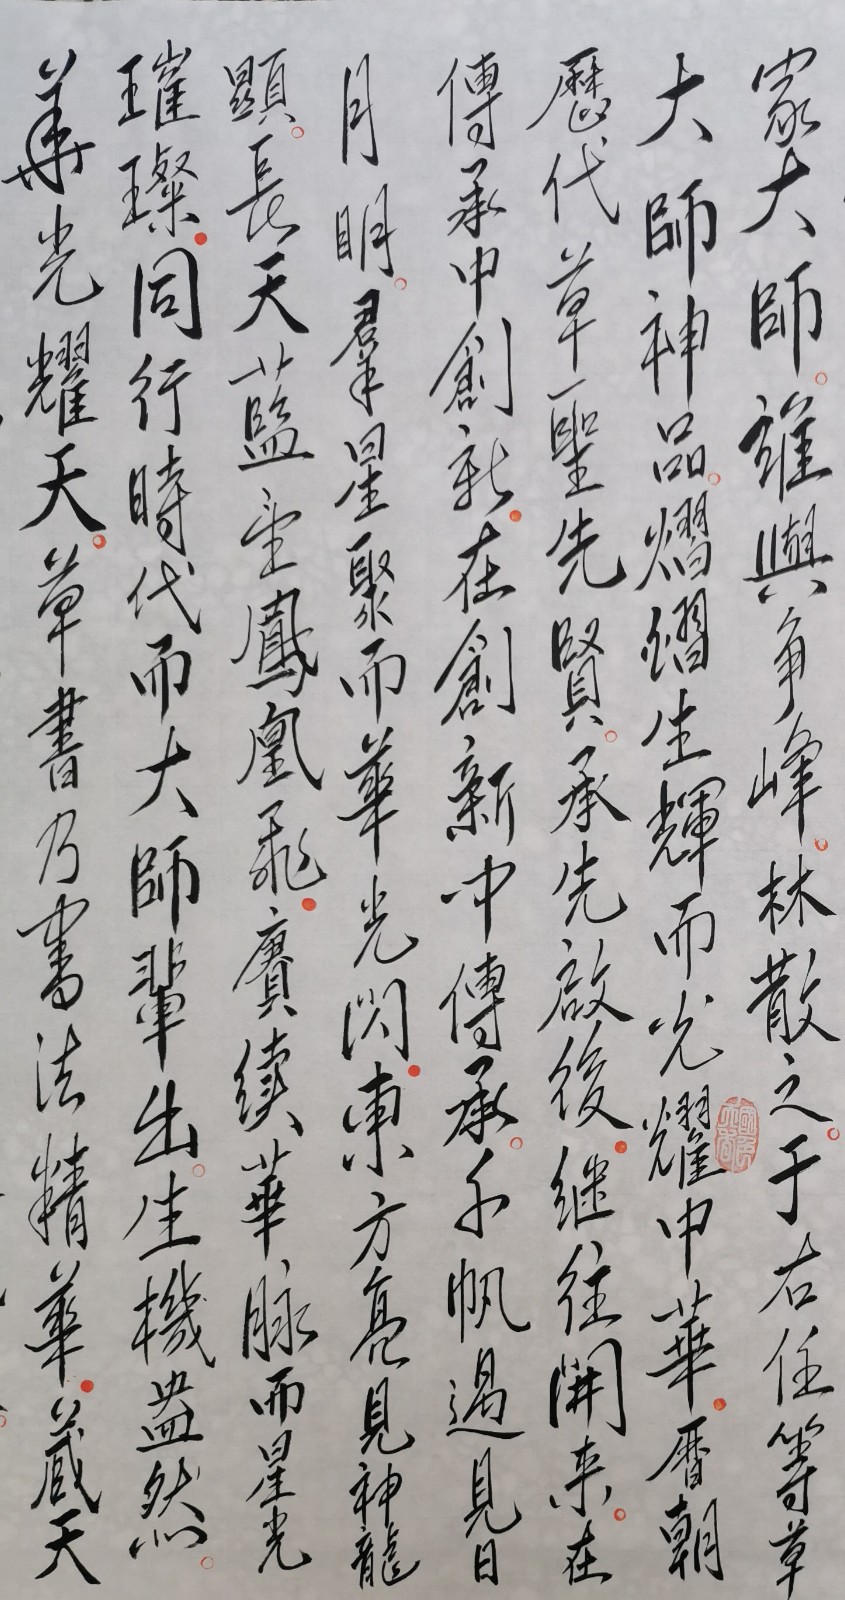 家大師。誰與争峰。林散之。于右任等草
大師神品。熠熠生輝而光耀中華。曆朝
歷代草聖先賢。承先啟後。继往開来。在
傳承中創新。在創新中傳承。千帆過見日
月明。羣星聚而華光閃。東方亮見神龍
顯。長天藍望鳳凰飛。賡续華脉而星光
璀璨。同行時代而大師輩出。生機盎然。
華光耀天。草書乃書法精華。蔵天